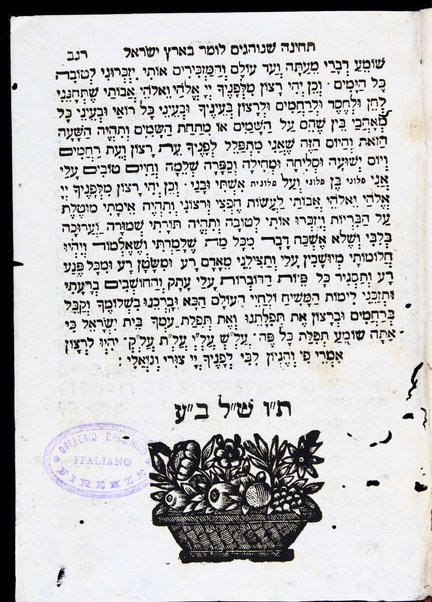 תחינה שנוהגים לומר בארץ ישראל רנב
שומע דברי מעתה ועד עולם והמזכירים אותי יזכרוני לטובה
כל הימים · וכן יהי רצון מלפניך יי אלהי ואלהי אבותי שתתנני
לחן ולחסד ולרחמים ולרצון בעיניך ובעיני כל רואי ובעיני כל
מאהבי בין שהם על השמים או מתחת השמים ותהיה השעה
הזאת והיום הזה שאני מתפלל לפניך עת רצון ועת רחמים
ויום ישועה וסליחה ומחילה וכפרה שלמה וחיים טובים עלי
אני פלוני בן פלוני ועל פלונית אשתי ובני · וכן יהי רצון מלפניך יי
אלהי ואלהי אבותי לעשות חפצי ורצוני ותהיה אימתי מוטלת
על הבריות ויזכרו אותי לטובה ותהיה תורתי שמורה וערוכה
בלבי ושלא אשכח דבר מכל מה שלמדתי ושאלמוד ויהיו
חלומותי מיושבין עלי ותצילני מאדם רע ומשטן רע ומכל פגע
רע ותסגיר כל פיות הדוברות עלי עתק והחושבים ברעתי
ותזכני לימות המשיח ולחיי העולם הבא וברכנו בשלומך וקבל
ברחמים וברצון את תפלתנו ואת תפלת עמך בית ישראל כי
אתה שומע תפלת כל פה · על״ש על״י על״ת על״ק · יהיו לרצון
אמרי פי והגיון לבי לפניך יי צורי וגואלי :
ת״ו ש״ל ב״ע
COLLEGIO RABBINICO
ITALIANO
FIRENZE